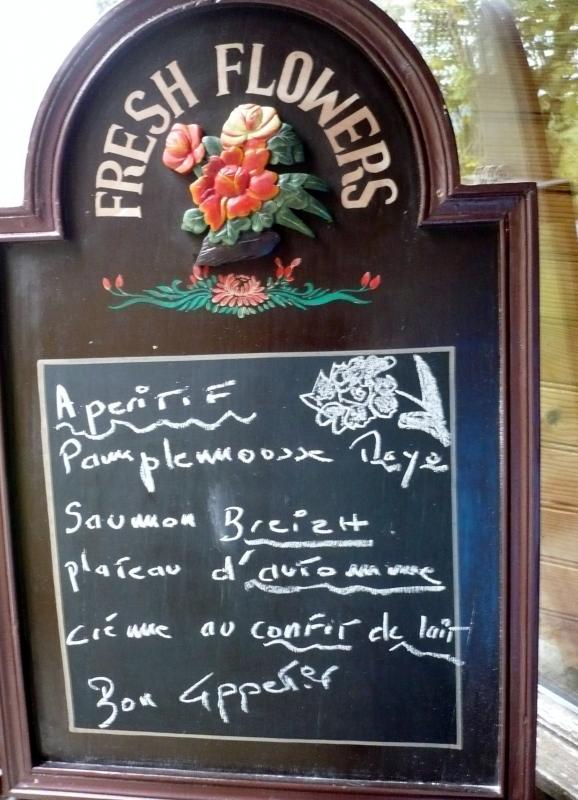 FRESH FLOWERS
Aperitif
Pamplemousse Raye
Saumon Breizh
plateau d'automne
crème au confit de lait
Bon appetit